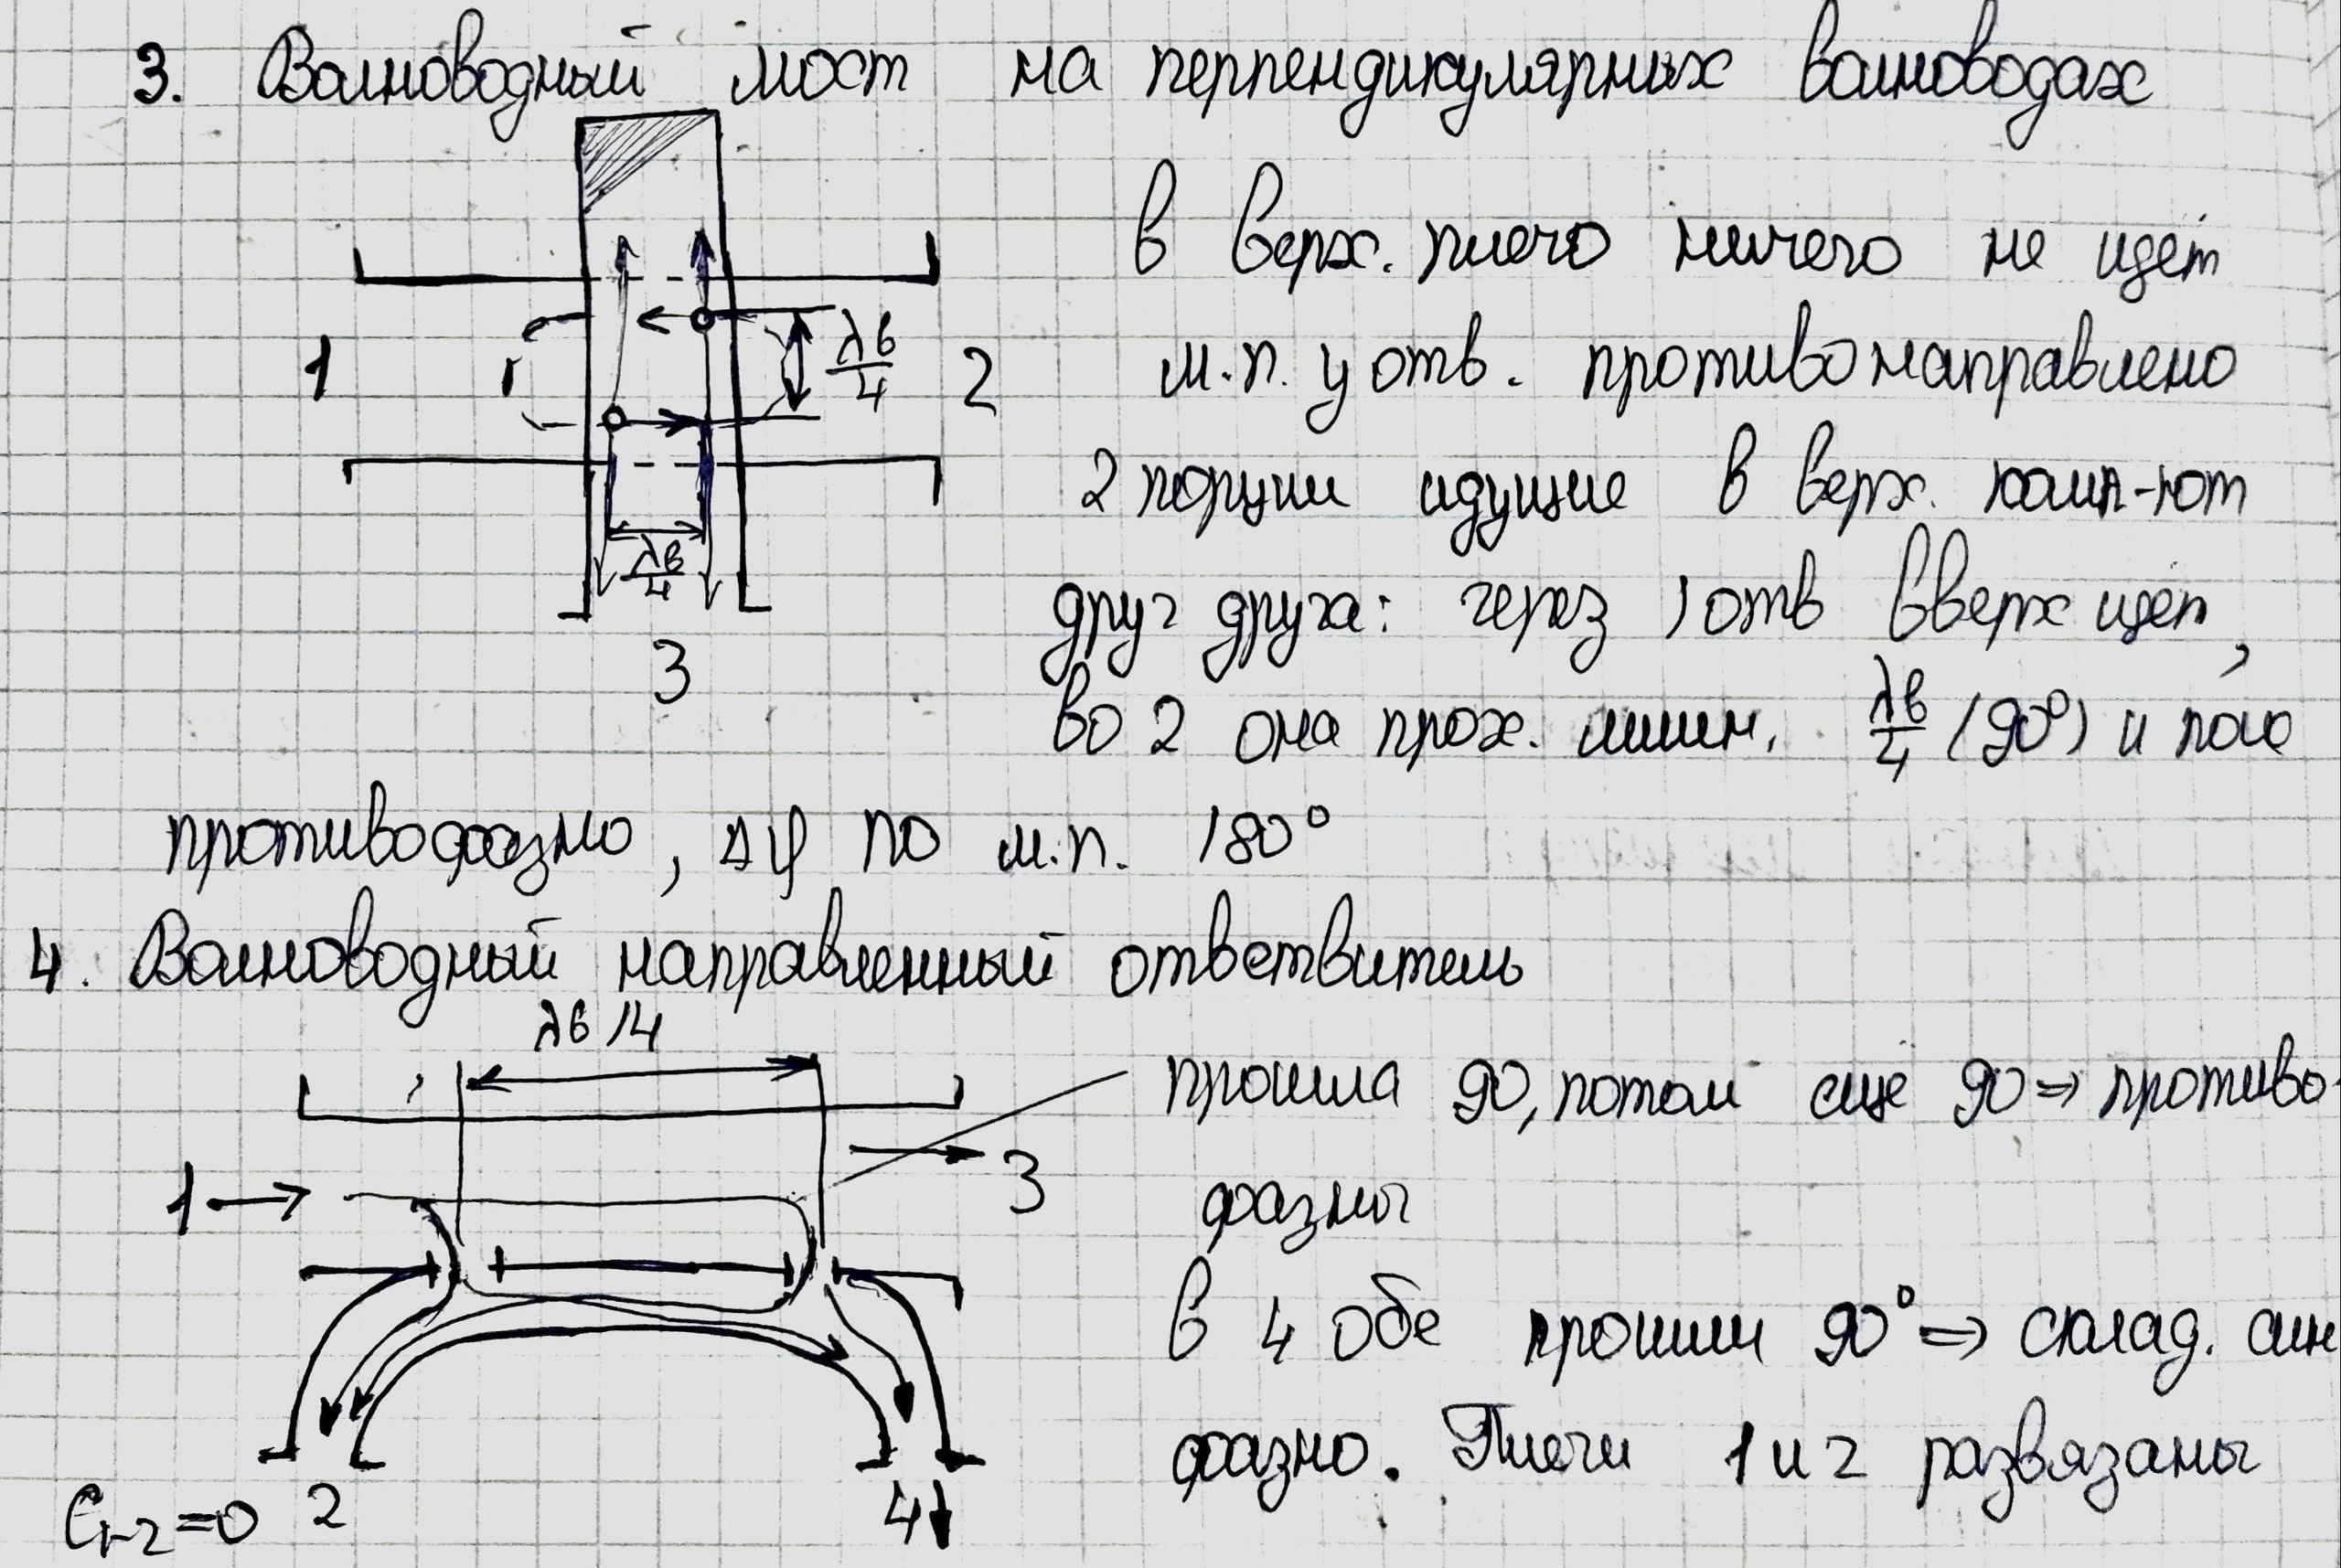 3. Волноводный мост на перпендикулярных волноводах
в верх. плечо ничего не идёт
1
λв/4
2
м.п. у отв. противонаправлено
2 порции идущие в верх. комп-ют
λв/4
друг друга: через 1 отв вверх идет,
3
во 2 она прох. λв/4 (90°) и
противофазно, Δφ по м.п. 180°
4. Волноводный направленный ответвитель
λв/4
прошла 90, потом еще 90 => противо-
1
3
фазны
в 4 обе прошли 90° => склад. син
фазно. Плечи 1 и 2 развязаны
C1-2=0
2
4